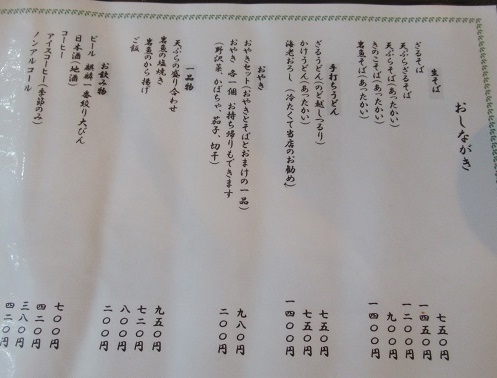 おしながき
生そば
ざるそば 七五〇円
天ぷらざるそば 一四五〇円
天ぷらそば(あったかい) 一二〇〇円
きのこそば(あったかい) 九〇〇円
岩魚そば(あったかい) 一四〇〇円
手打ちうどん
ざるうどん(のど越しつるり) 七五〇円
かけうどん(あったかい) 七五〇円
海老おろし(冷たくて当店のお勧め) 一四〇〇円
おやき
おやきセット(おやきとそばとおまけの一品) 九八〇円
おやき 各一個 お持ち帰りもできます 二〇〇円
(野沢菜、かぼちゃ、茄子、切干)
一品物
天ぷらの盛り合わせ 九五〇円
岩魚の塩焼き 七二〇円
岩魚のから揚げ 八〇〇円
ご飯 二〇〇円
お飲み物
ビール 麒麟一番絞り大びん 七〇〇円
日本酒(地酒)
コーヒー 四二〇円
アイスコーヒー(季節のみ) 三八〇円
ノンアルコール 四二〇円